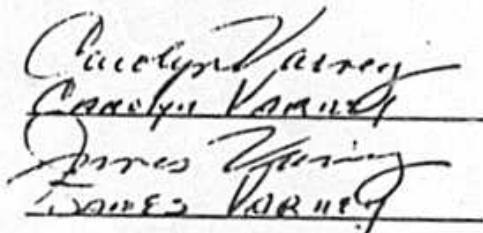 Carolyn Varney
Carolyn Varney
James Varney
James Varney